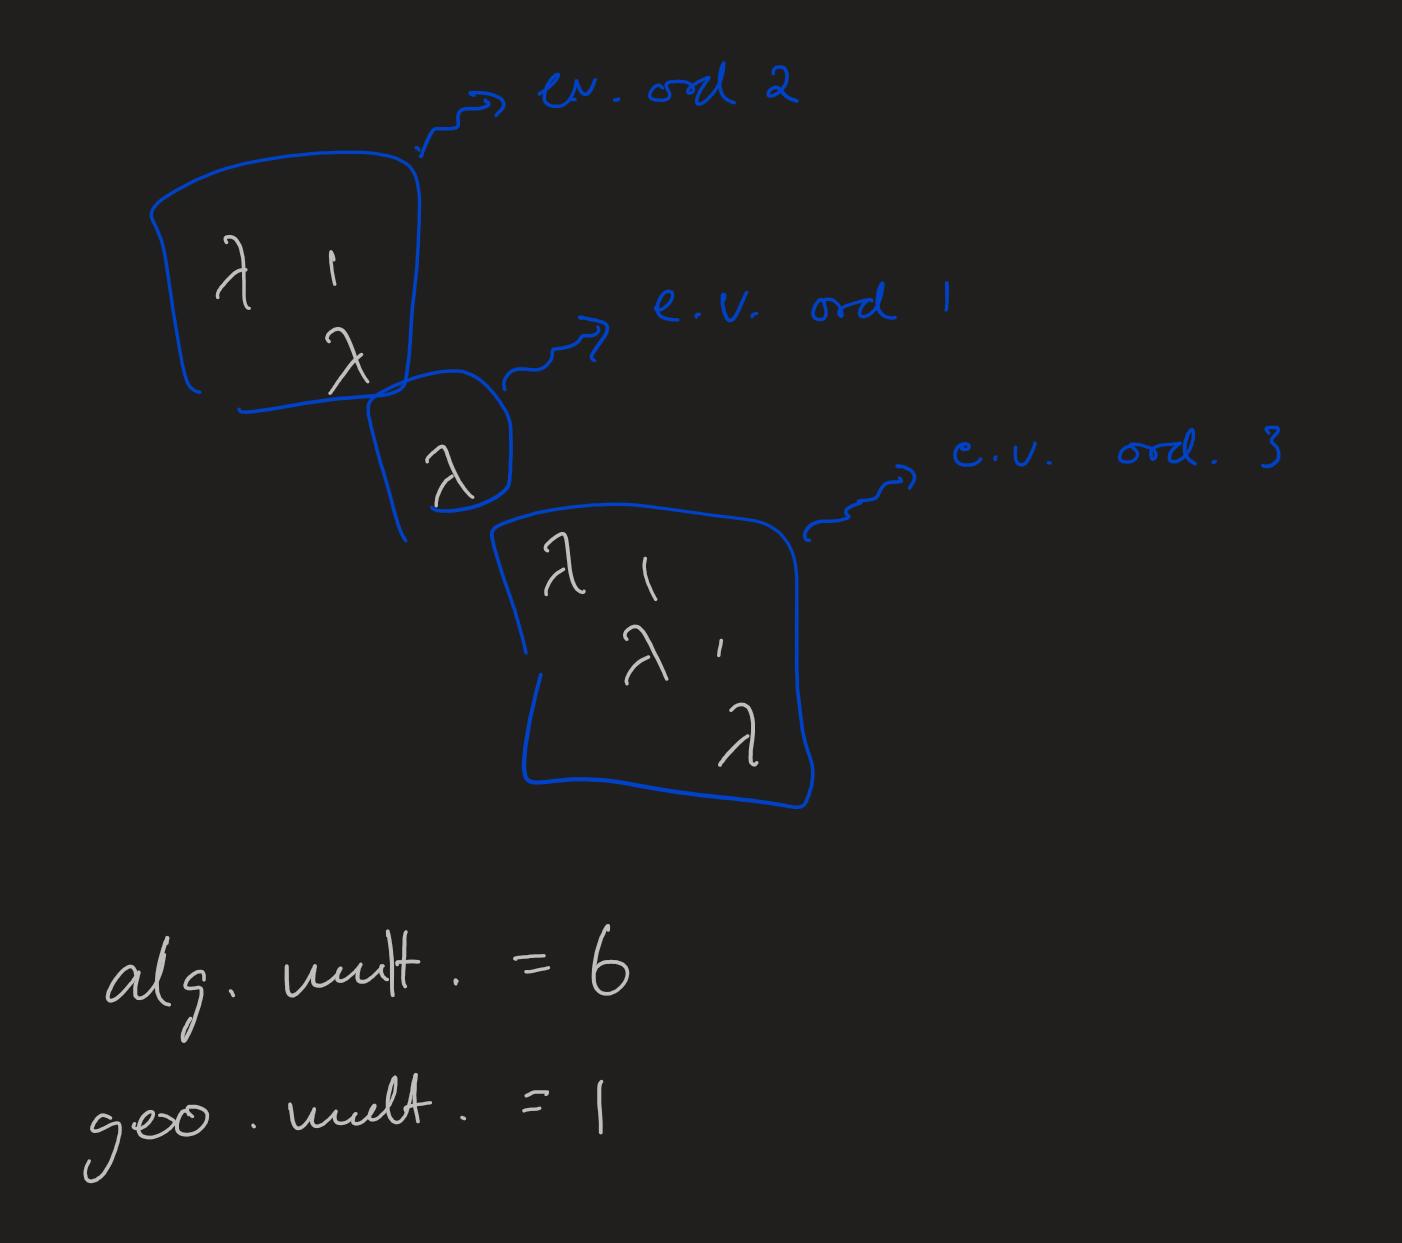 ev. ord 2
λ 1
λ
e.v. ord 1
λ
e.v. ord. 3
λ 1
λ 1
λ
alg. mult. = 6
geo. mult. = 1